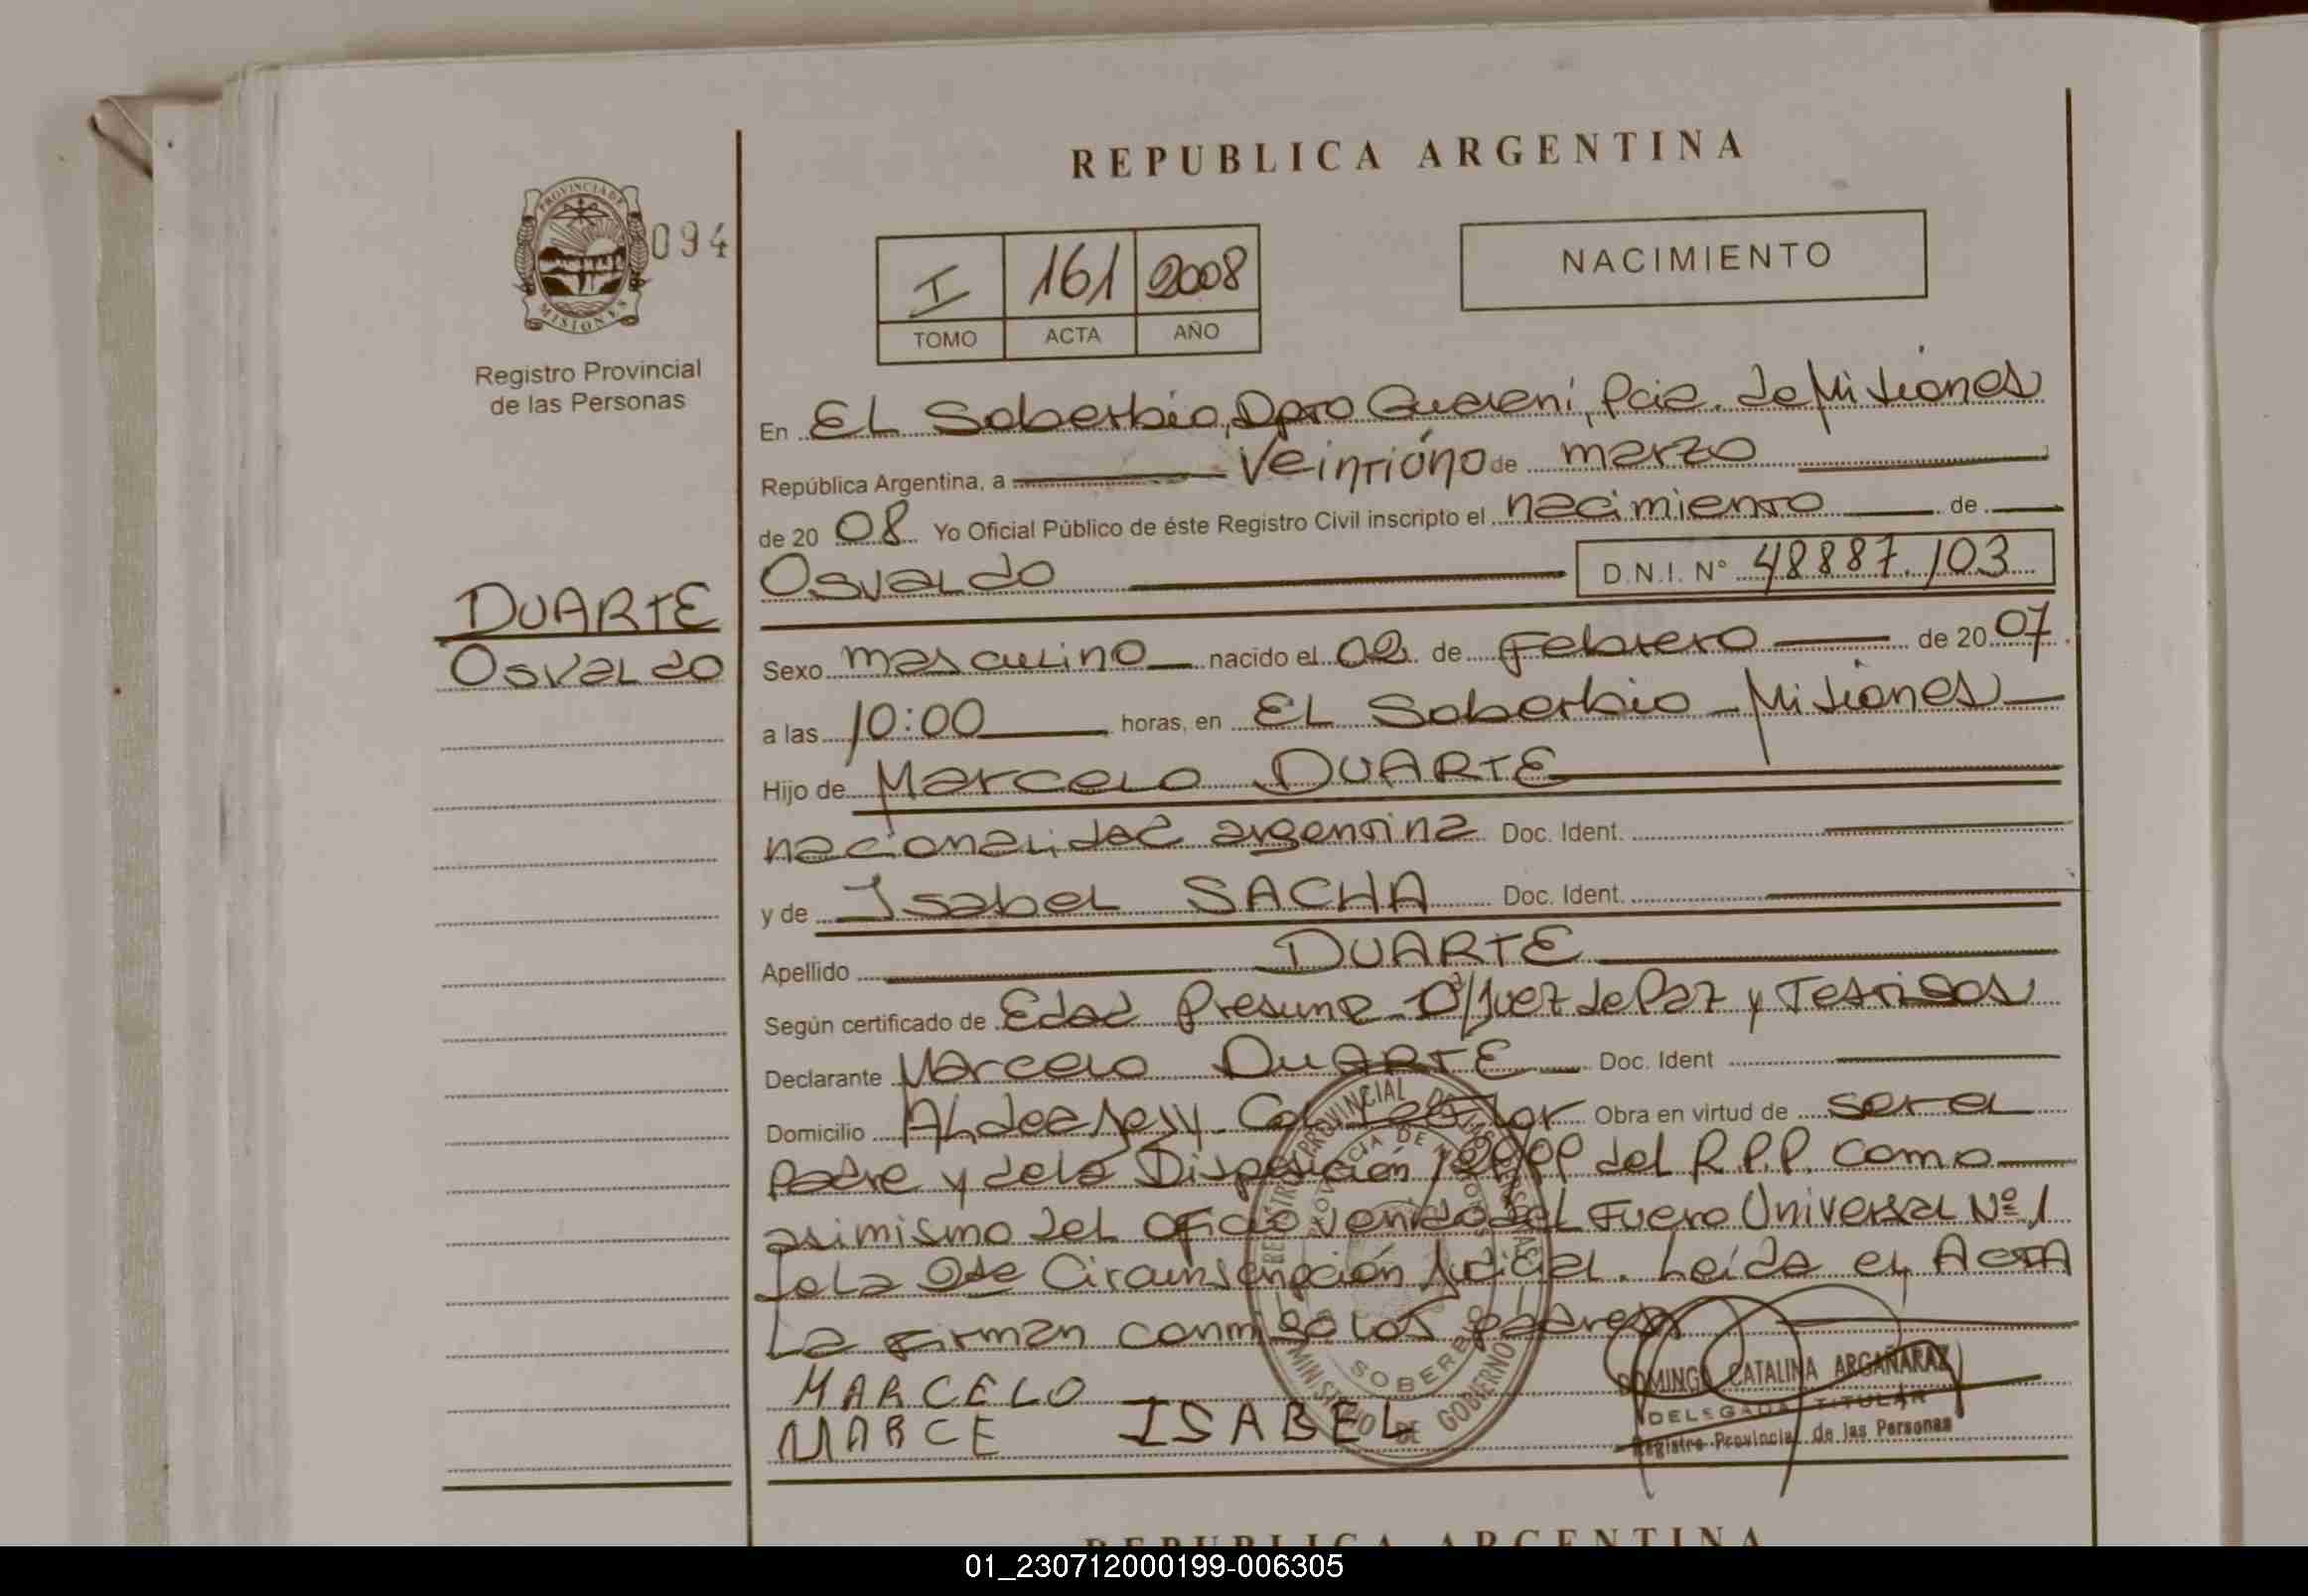 REPUBLICA ARGENTINA
PROVINCIA DE
MISIONES
094
I 161 2008
TOMO ACTA AÑO
NACIMIENTO
Registro Provincial
de las Personas
En EL Soberbio, Dpto Guaraní, Pcia. de Misiones
República Argentina, a Veintiúno de marzo
de 20 08 Yo Oficial Público de éste Registro Civil inscripto el nacimiento de
Osvaldo D.N.I. N° 48887.103
DUARTE
Osvaldo
Sexo masculino nacido el 02 de Febrero de 20 07
a las 10:00 horas, en EL Soberbio - Misiones
Hijo de Marcelo DUARTE
nacionalidad argentina Doc. Ident.
y de Isabel SACHA Doc. Ident.
Apellido DUARTE
Según certificado de Edad Presunta Juez de Paz y Testigos
Declarante Marcelo DUARTE Doc. Ident
Domicilio Aldea Obra en virtud de ser el
Padre y de la Disposición del R.P.P. Como
asimismo del oficio venido del Fuero Universal Nº 1
de la 2da Circunscripción Judicial. Leída el ACTA
La Firman conmigo los padres
MARCELO
MARCE ISABEL
REGISTRO PROVINCIAL DE LAS PERSONAS
PROVINCIA DE MISIONES
SOBERBIO
MINISTERIO DE GOBIERNO
DOMINGA CATALINA ARGAÑARAZ
DELEGADA TITULAR
Registro Provincial de las Personas
REPUBLICA ARGENTINA
01_230712000199-006305